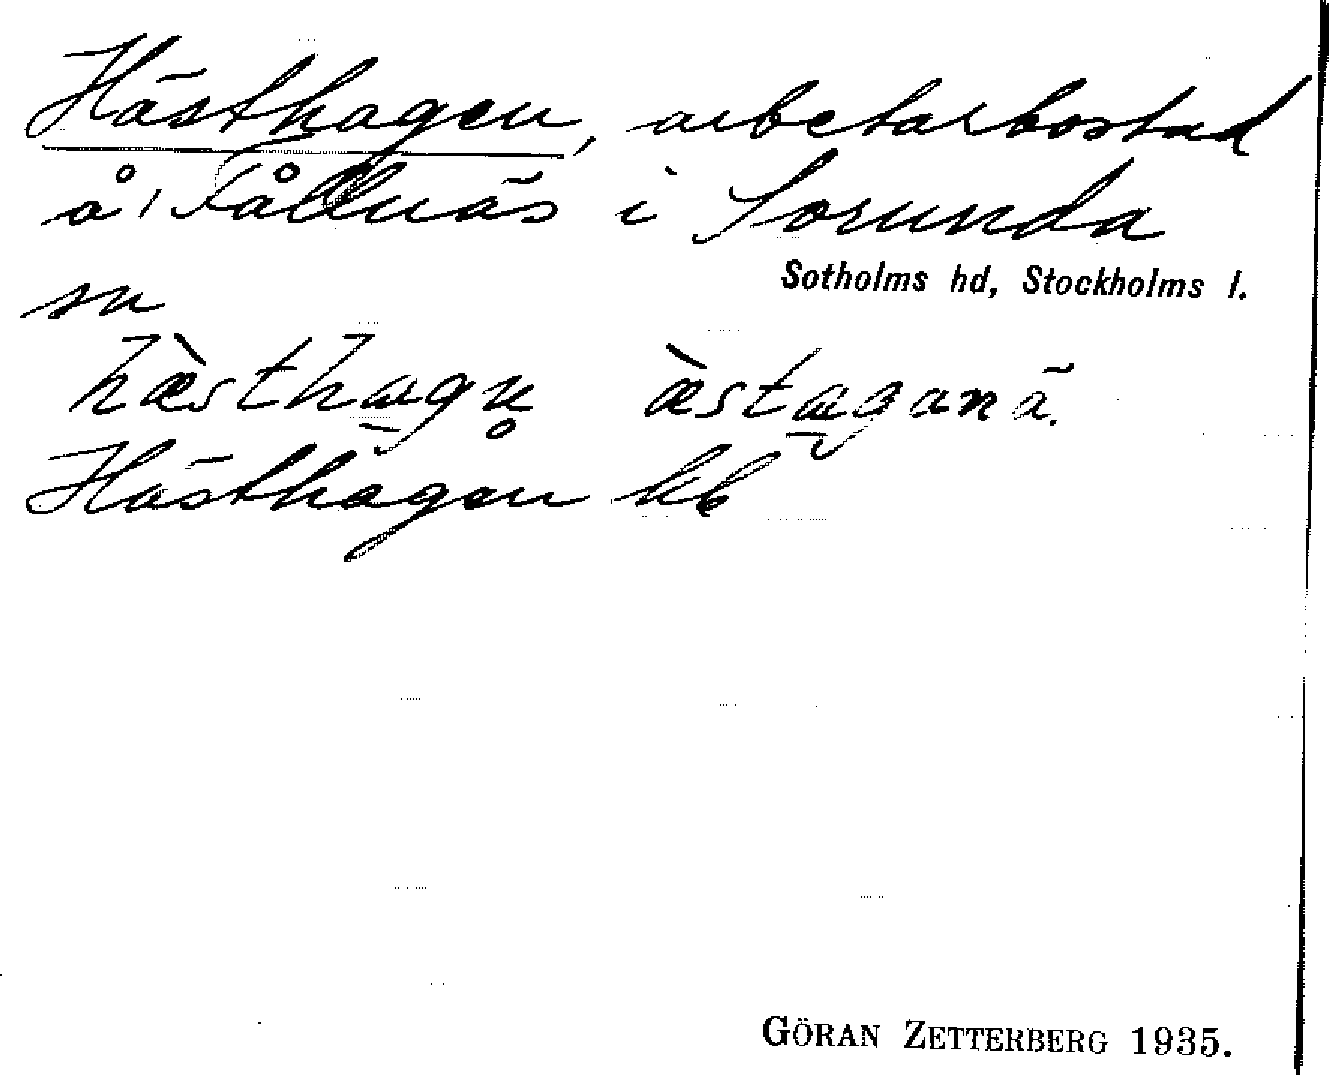 Hästhagen, arbetarbostad
å Fållnäs i Sorunda
Sotholms hd, Stockholms l.
sn
hæ̀sthagn̥ æ̀staganä.
Hästhagen kb
GÖRAN ZETTERBERG 1935.